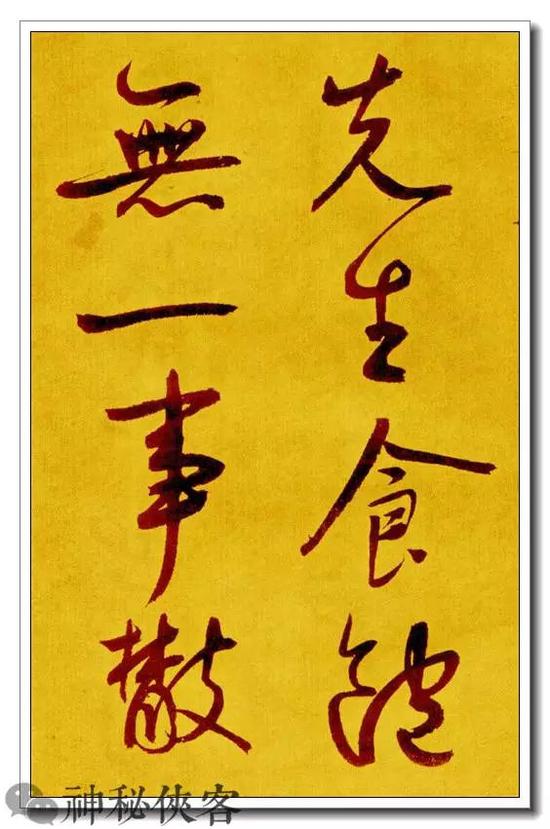 先生食飽
無一事散
神秘侠客